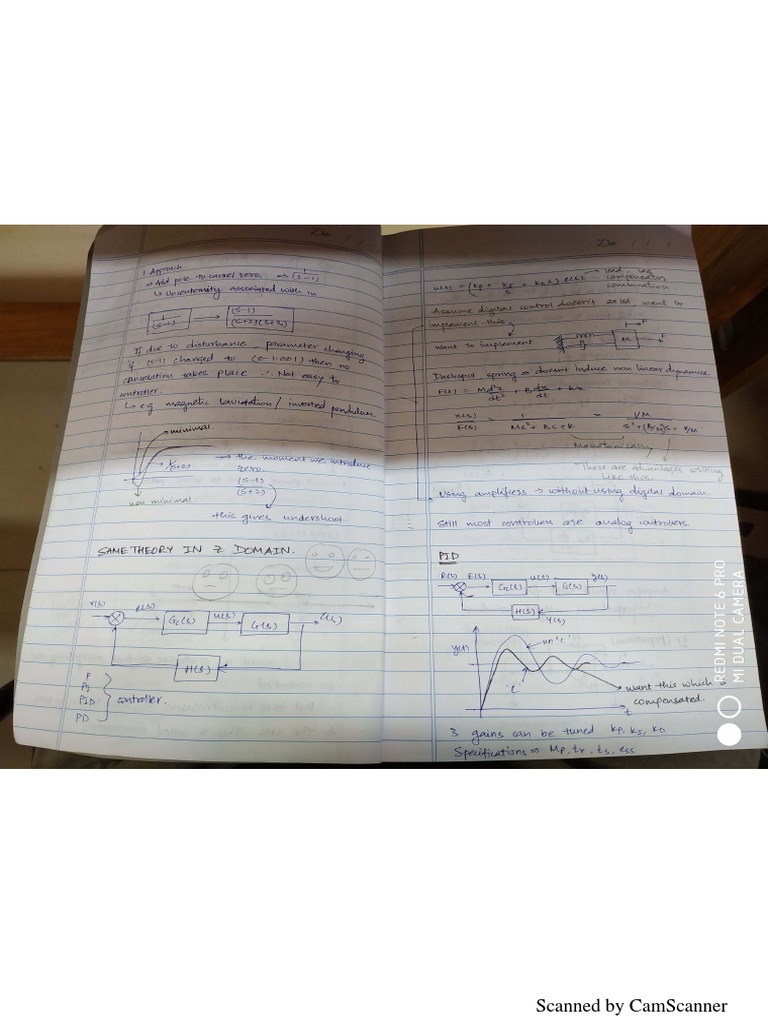 1 Approach
→ Add pole to cancel zero. → 1/(s-1)
↳ Uncertainity associated with in
1/(s+2) → (s-1)/(s+2)(s+3)
If due to disturbance parameter changing
if (s-1) changed to (s-1.001) then no
cancelation takes place ∴ Not easy to
controller.
↳ eg magnetic / inverted pendulum.
→ minimal.
1/(s+2)
→ the moment we introduce
zero.
(s-1)/(s+2)
non minimal
this gives undershoot.
SAME THEORY IN Z DOMAIN.
r(s) e(s) Gc(s) u(s) G(s)
H(s)
P
PI
PID
PD
controller.
u(s) = (kp + kI/s + kDs) e(s) → lead, lag
compensator
combination
Assume digital control doesn't exist want to
implement this.
want to implement
M
→ doesn't induce non linear dynamics.
F(t) = M d²x/dt² + B dx/dt + kx
x(s)/F(s) = 1/(Ms² + Bs + k) = 1/M/(s² + (B/M)s + k/M)
There are advantages writing
like this.
Using amplifiers → without using digital domain.
Still most controllers are analog controllers.
PID
R(s) E(s) Gc(s) u(s) G(s) y(s)
H(s)
Y(s)
y(t)
un'c'
'c'
want this which is
compensated.
t
3 gains can be tuned kp, kI, kD
Specifications ⇒ Mp, tr, ts, ess
REDMI NOTE 6 PRO
MI DUAL CAMERA
Scanned by CamScanner